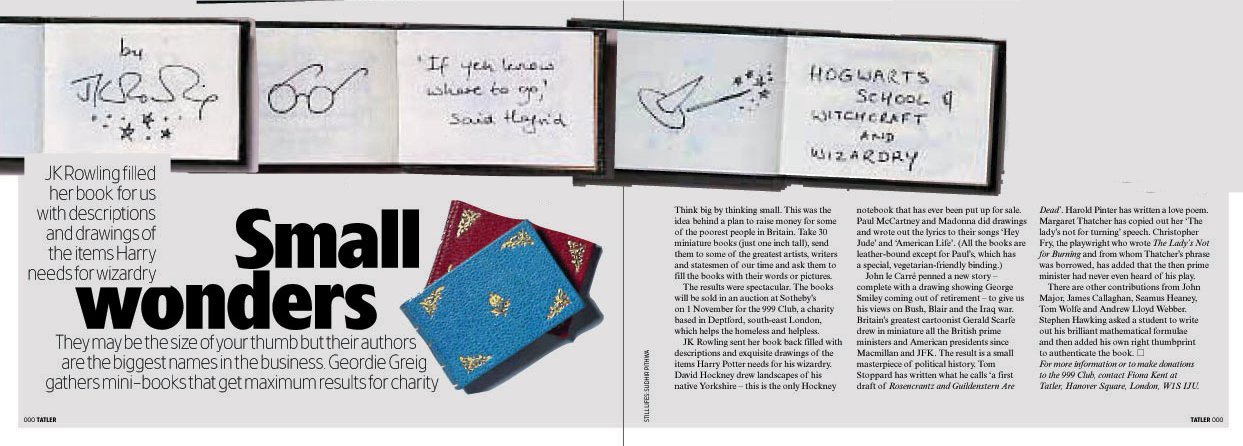 by
JK Rowling
'If yeh know
where to go,'
said Hagrid
HOGWARTS
SCHOOL of
WITCHCRAFT
AND
WIZARDRY
JK Rowling filled
her book for us
with descriptions
and drawings of
the items Harry
needs for wizardry
Small
wonders
They may be the size of your thumb but their authors
are the biggest names in the business. Geordie Greig
gathers mini-books that get maximum results for charity
000 TATLER
STILL LIFES: SUDHIR PITHWA
Think big by thinking small. This was the
idea behind a plan to raise money for some
of the poorest people in Britain. Take 30
miniature books (just one inch tall), send
them to some of the greatest artists, writers
and statesmen of our time and ask them to
fill the books with their words or pictures.
The results were spectacular. The books
will be sold in an auction at Sotheby's
on 1 November for the 999 Club, a charity
based in Deptford, south-east London,
which helps the homeless and helpless.
JK Rowling sent her book back filled with
descriptions and exquisite drawings of the
items Harry Potter needs for his wizardry.
David Hockney drew landscapes of his
native Yorkshire – this is the only Hockney
notebook that has ever been put up for sale.
Paul McCartney and Madonna did drawings
and wrote out the lyrics to their songs 'Hey
Jude' and 'American Life'. (All the books are
leather-bound except for Paul's, which has
a special, vegetarian-friendly binding.)
John le Carré penned a new story –
complete with a drawing showing George
Smiley coming out of retirement – to give us
his views on Bush, Blair and the Iraq war.
Britain's greatest cartoonist Gerald Scarfe
drew in miniature all the British prime
ministers and American presidents since
Macmillan and JFK. The result is a small
masterpiece of political history. Tom
Stoppard has written what he calls 'a first
draft of Rosencrantz and Guildenstern Are
Dead'. Harold Pinter has written a love poem.
Margaret Thatcher has copied out her 'The
lady's not for turning' speech. Christopher
Fry, the playwright who wrote The Lady's Not
for Burning and from whom Thatcher's phrase
was borrowed, has added that the then prime
minister had never even heard of his play.
There are other contributions from John
Major, James Callaghan, Seamus Heaney,
Tom Wolfe and Andrew Lloyd Webber.
Stephen Hawking asked a student to write
out his brilliant mathematical formulae
and then added his own right thumbprint
to authenticate the book. □
For more information or to make donations
to the 999 Club, contact Fiona Kent at
Tatler, Hanover Square, London, W1S 1JU.
TATLER 000